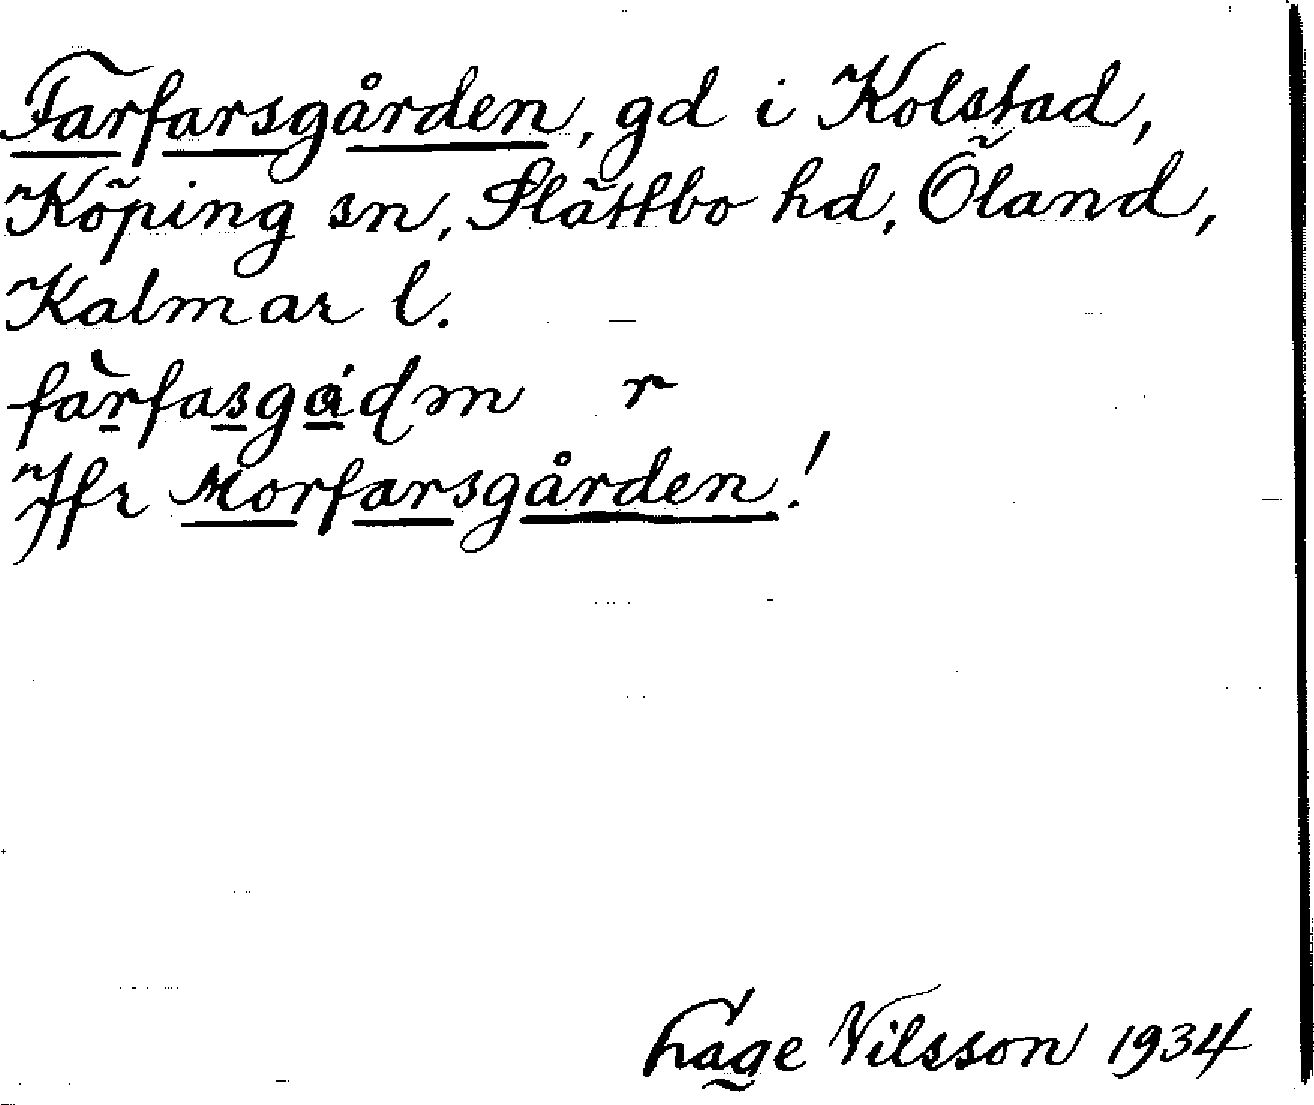 Farfarsgården, gd i Kolstad,
Köping sn, Slättbo hd, Öland,
Kalmar l.
r
Jfr Morfarsgården!
Nilsson 1934